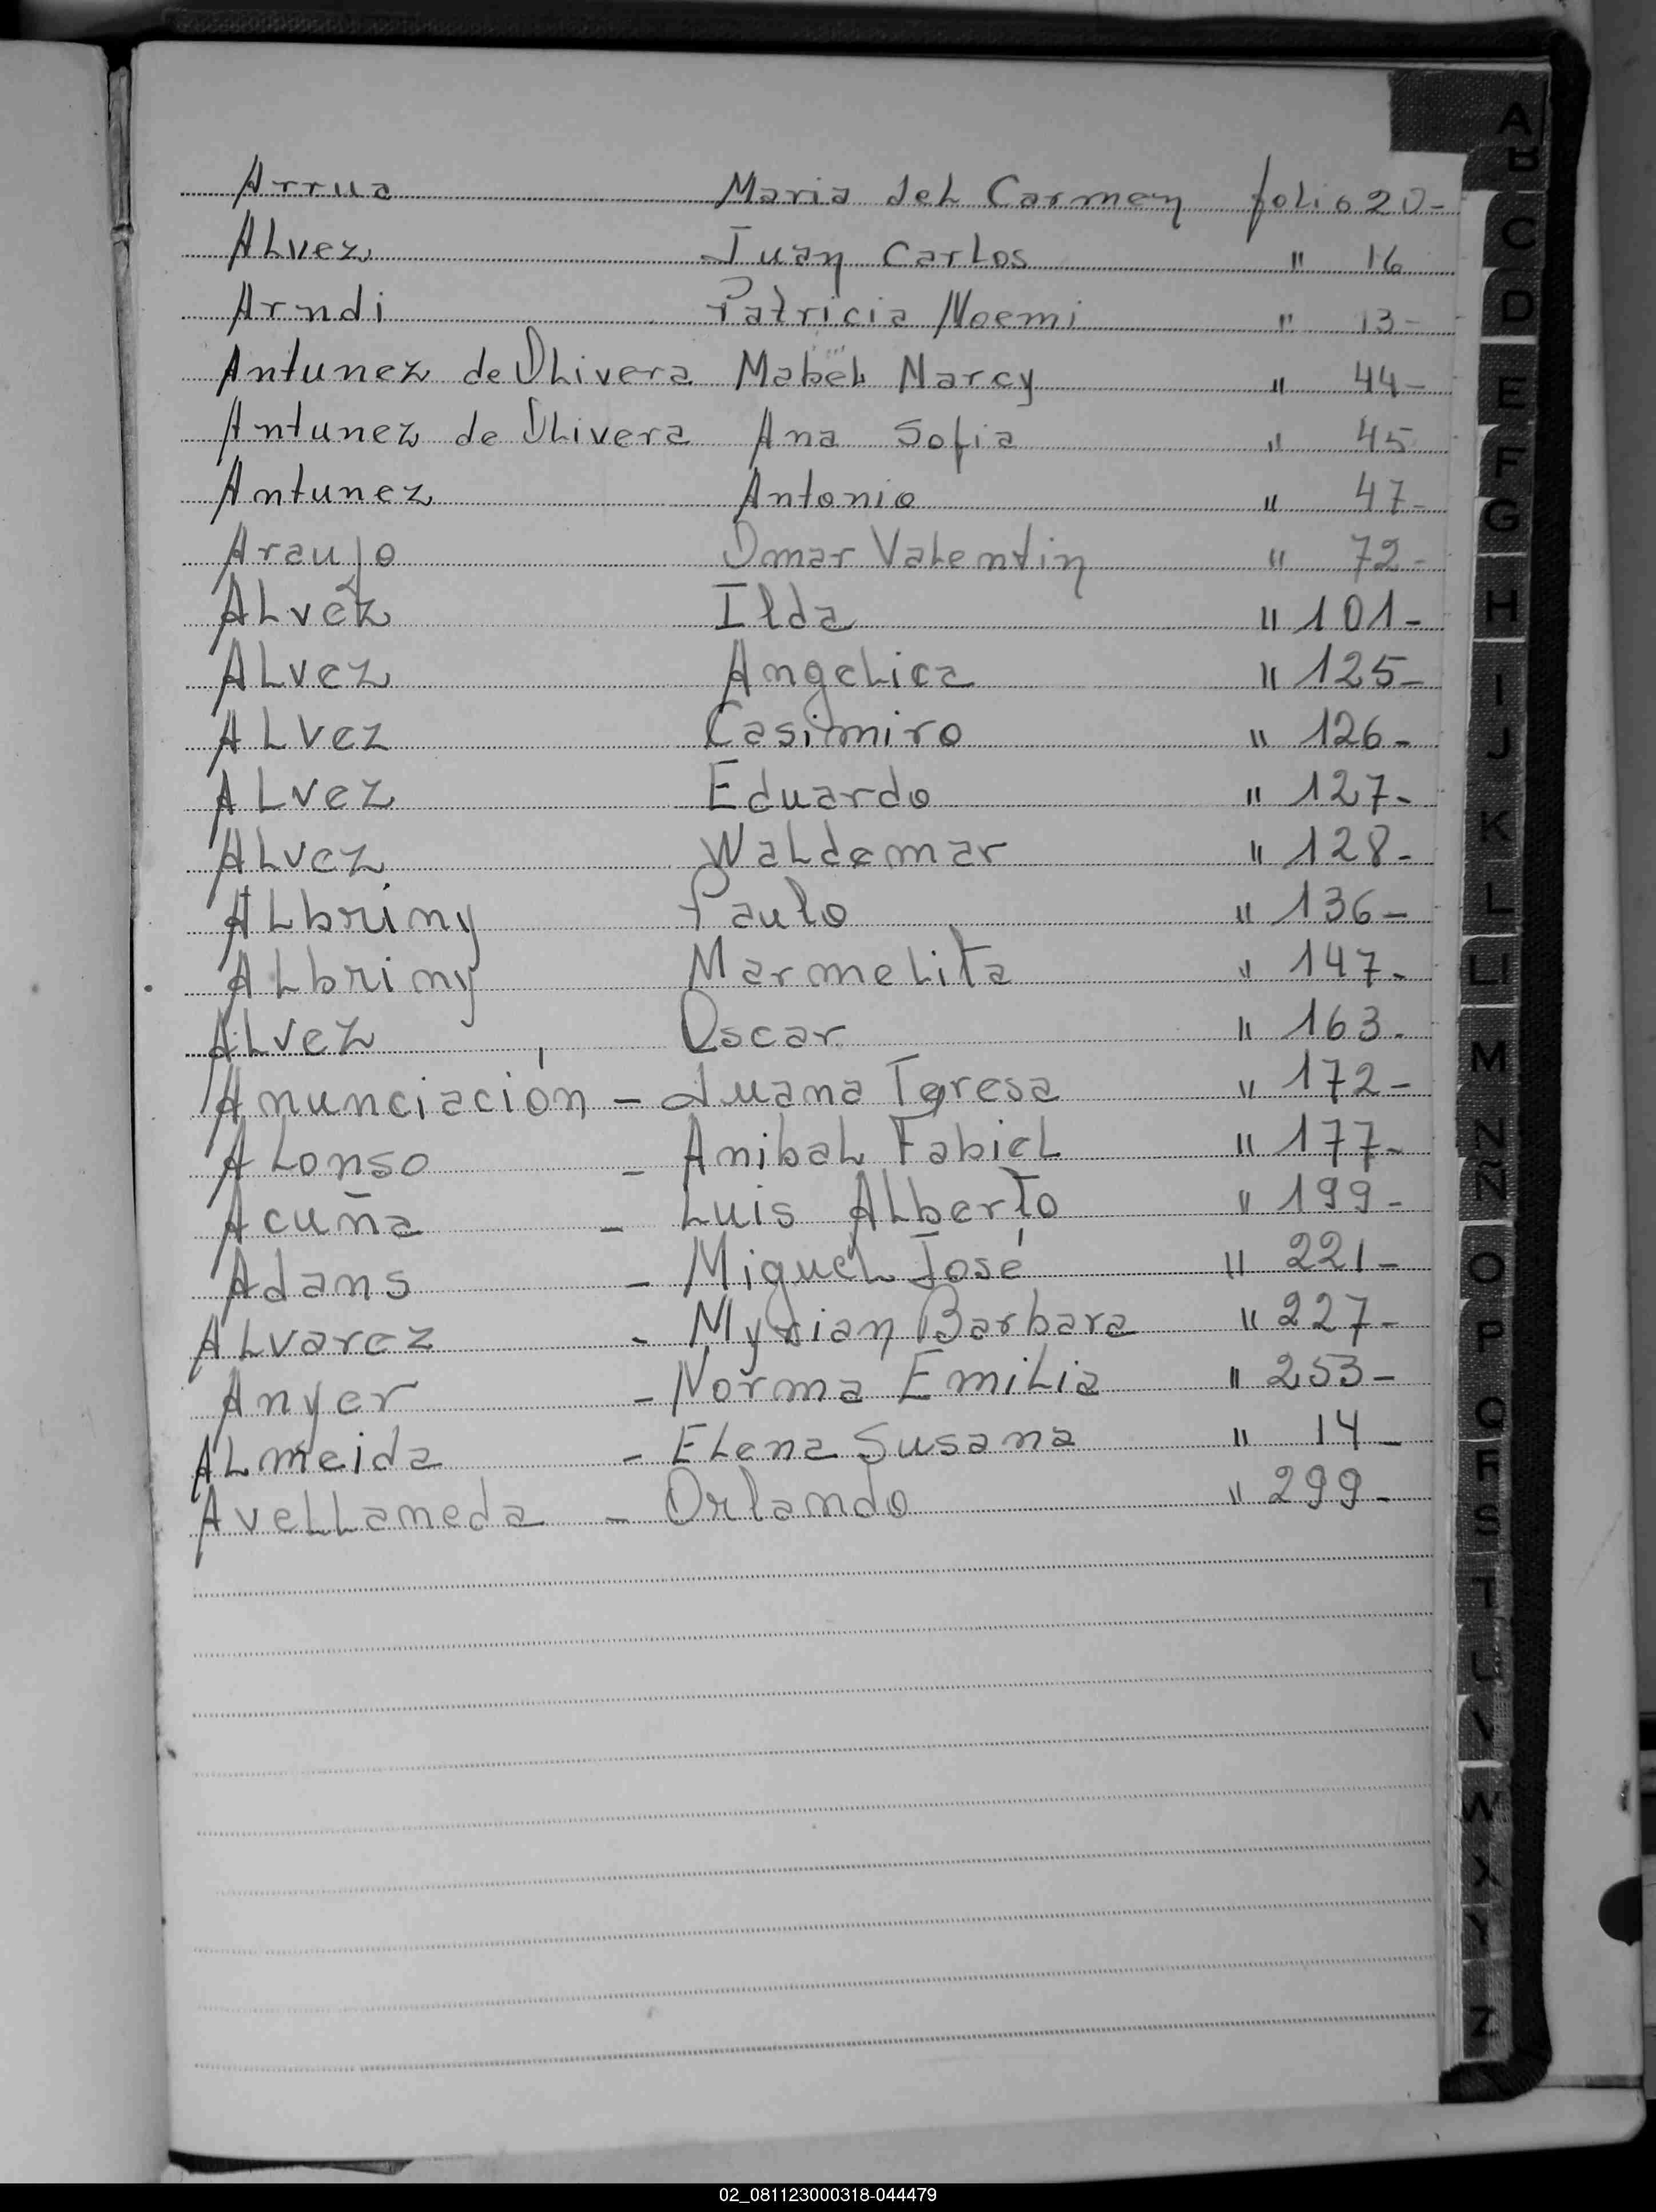 Arrua Maria del Carmen folio 20-
Alvez Juan Carlos " 16
Arndi Patricia Noemi " 13-
Antunez de Olivera Mabel Narcy " 44-
Antunez de Olivera Ana Sofia " 45
Antunez Antonio " 47-
Araujo Omar Valentin " 72-
Alvez Ilda " 101-
Alvez Angelica " 125-
Alvez Casimiro " 126-
Alvez Eduardo " 127-
Alvez Waldemar " 128-
Albriny Paulo " 136-
Albriny Marmelita " 147-
Alvez Oscar " 163-
Anunciación - Juana Teresa " 172-
Alonso - Anibal Fabiel " 177-
Acuña - Luis Alberto " 199-
Adans - Miguel José " 221-
Alvarez - Myrian Barbara " 227-
Anyer - Norma Emilia " 253-
Almeida - Elena Susana " 14-
Avellameda - Orlando " 299-
A
B
C
D
E
F
G
H
I
J
K
L
Ll
M
N
Ñ
O
P
Q
R
S
T
U
V
W
X
Y
Z
02_081123000318-044479